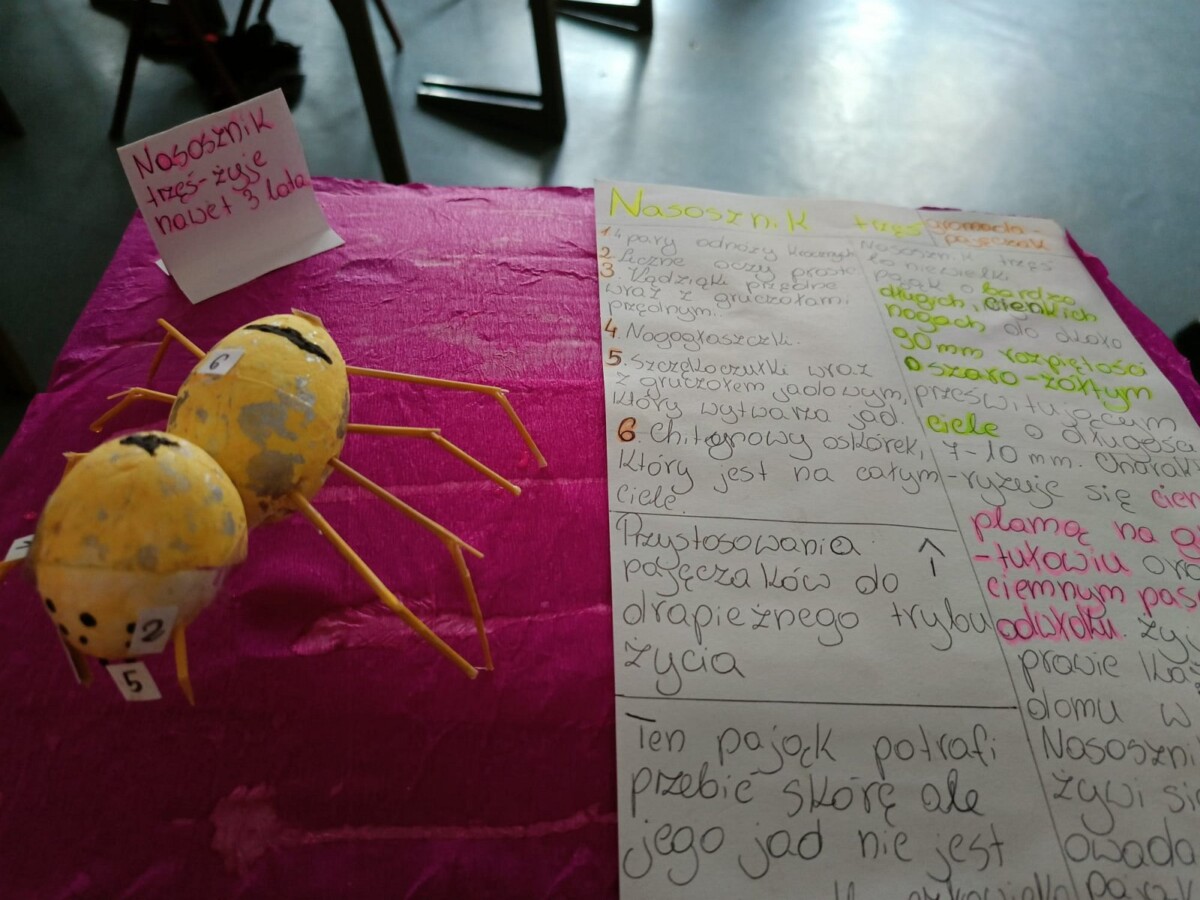 Nasosznik
trzęś-żyje
nawet 3 lata
6
2
5
Nasosznik trzęś
gromada-
pajęczak
1 4 pary odnóży krocznych
2 Liczne oczy proste
3 Kądziołki przędne
wraz z gruczołami
przędnym.
4 Nogogłaszczki.
5 Szczękoczułki wraz
z gruczołem jadowym,
który wytwarza jad.
6 Chitynowy oskórek,
który jest na całym
ciele.
Przystosowania ^
pajęczaków do
drapieżnego trybu
życia
Ten pająk potrafi
przebić skórę ale
jego jad nie jest
Nasosznik trzęś
to niewielki
pająk o bardzo
długich, cienkich
nogach do około
90 mm rozpiętości
o szaro-żółtym
prześwitującym
ciele o długości
7-10 mm. Charakte
-ryzuje się ciem
plamą na gł
-tułowiu ora
ciemnym pas
odwłoku. Żyj
prawie każ
domu w
Nasoszni
żywi się
owada